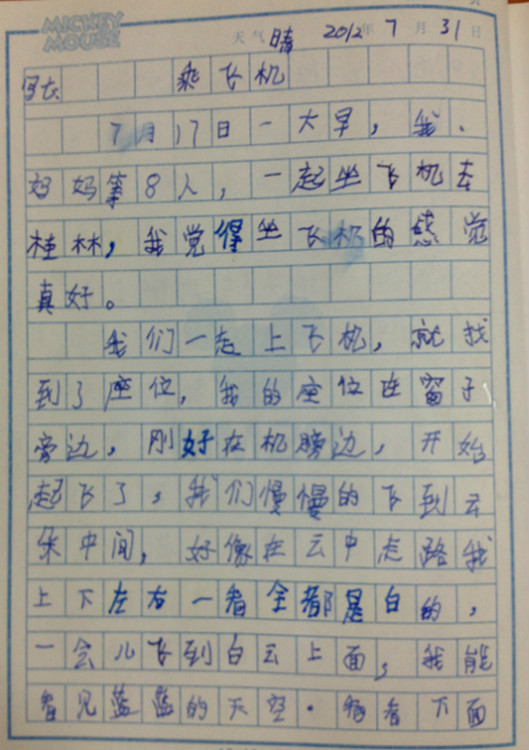 MICKEY
MOUSE
天气 晴 2012年 7月 31日
乘飞机
7月17日一大早，我.
妈妈等8人，一起坐飞机去
桂林，我觉得坐飞机的感觉
真好。
我们一起上飞机，就找
到了座位，我的座位在窗子
旁边，刚好在机膀边，开始
起飞了，我们慢慢的飞到云
朵中间，好像在云中走路我
上下左右一看全都是白的，
一会儿飞到白云上面，我能
看见蓝蓝的天空.看下面